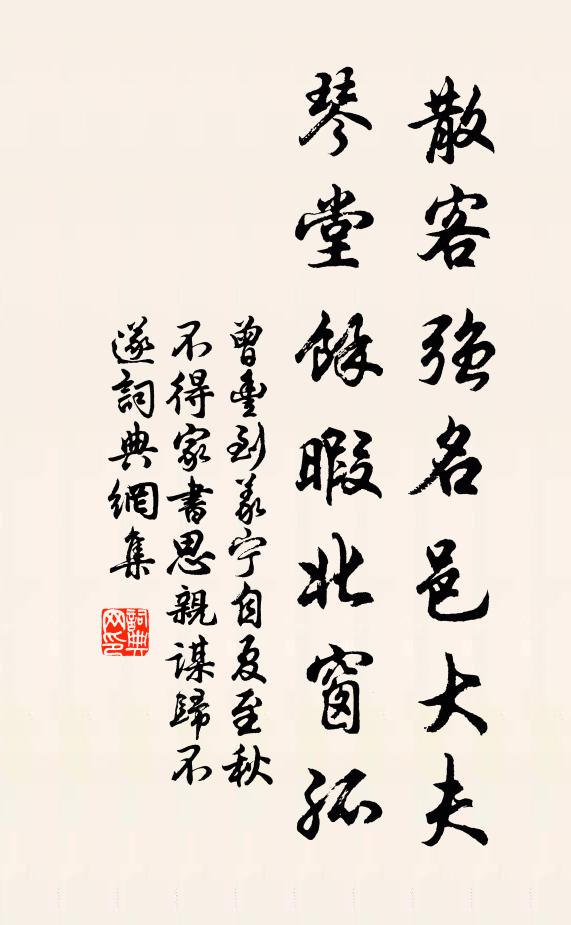 散客強名邑大夫
琴堂餘暇北窗孤
曾豐到義宁自夏至秋
不得家書思親謀歸不
遂詞典網集
詞典
网印